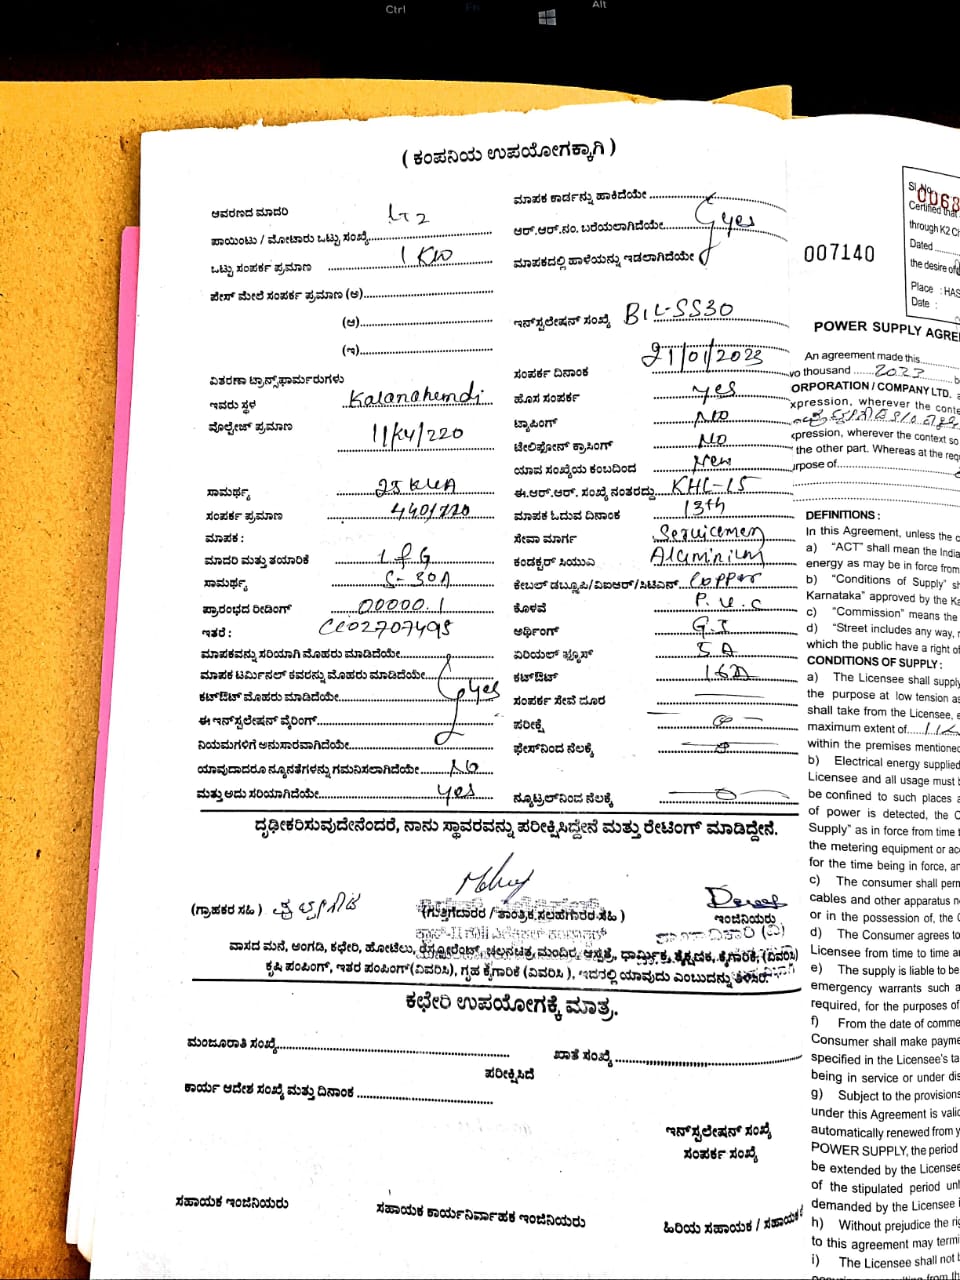 Ctrl
Fn
Alt
( ಕಂಪನಿಯ ಉಪಯೋಗಕ್ಕಾಗಿ )
ಆವರಣದ ಮಾದರಿ LT2
ಪಾಯಿಂಟು / ಮೋಟಾರು ಒಟ್ಟು ಸಂಖ್ಯೆ
ಒಟ್ಟು ಸಂಪರ್ಕ ಪ್ರಮಾಣ 1 KW
ಪೇಸ್ ಮೇಲೆ ಸಂಪರ್ಕ ಪ್ರಮಾಣ (ಅ)
(ಆ)
(ಇ)
ವಿತರಣಾ ಟ್ರಾನ್ಸ್‌ಫಾರ್ಮರುಗಳು
ಇವರು ಸ್ಥಳ Kalanahemdi
ವೋಲ್ಟೇಜ್ ಪ್ರಮಾಣ 11/K4/220
ಸಾಮರ್ಥ್ಯ 25 KVA
ಸಂಪರ್ಕ ಪ್ರಮಾಣ 440/220
ಮಾಪಕ :
ಮಾದರಿ ಮತ್ತು ತಯಾರಿಕೆ L&G
ಸಾಮರ್ಥ್ಯ 5-30A
ಪ್ರಾರಂಭದ ರೀಡಿಂಗ್ 00000.1
ಇತರೆ : CC02707495
ಮಾಪಕವನ್ನು ಸರಿಯಾಗಿ ಮೊಹರು ಮಾಡಿದೆಯೇ
ಮಾಪಕ ಟರ್ಮಿನಲ್ ಕವರನ್ನು ಮೊಹರು ಮಾಡಿದೆಯೇ
ಕಟ್‌ಔಟ್ ಮೊಹರು ಮಾಡಿದೆಯೇ yes
ಈ ಇನ್‌ಸ್ಟಲೇಷನ್ ವೈರಿಂಗ್
ನಿಯಮಗಳಿಗೆ ಅನುಸಾರವಾಗಿದೆಯೇ
ಯಾವುದಾದರೂ ನ್ಯೂನತೆಗಳನ್ನು ಗಮನಿಸಲಾಗಿದೆಯೇ No
ಮತ್ತು ಅದು ಸರಿಯಾಗಿದೆಯೇ yes
ಮಾಪಕ ಕಾರ್ಡನ್ನು ಹಾಕಿದೆಯೇ
ಆರ್.ಆರ್.ನಂ. ಬರೆಯಲಾಗಿದೆಯೇ yes
ಮಾಪಕದಲ್ಲಿ ಹಾಳೆಯನ್ನು ಇಡಲಾಗಿದೆಯೇ
ಇನ್‌ಸ್ಟಲೇಷನ್ ಸಂಖ್ಯೆ BIL-5530
ಸಂಪರ್ಕ ದಿನಾಂಕ 21/01/2023
ಹೊಸ ಸಂಪರ್ಕ yes
ಟ್ಯಾಪಿಂಗ್ No
ಟೆಲಿಫೋನ್ ಕ್ರಾಸಿಂಗ್ No
ಯಾವ ಸಂಖ್ಯೆಯ ಕಂಬದಿಂದ New
ಈ.ಆರ್.ಆರ್. ಸಂಖ್ಯೆ ನಂತರದ್ದು KHL-15
ಮಾಪಕ ಓದುವ ದಿನಾಂಕ 13th
ಸೇವಾ ಮಾರ್ಗ Servicemen
ಕಂಡಕ್ಟರ್ ಸಿಯುವಿ Aluminium
ಕೇಬಲ್ ಡಬ್ಲ್ಯೂಪಿ/ವಿಐಆರ್/ಸಿಟಿಎಸ್ Copper
ಕೊಳವೆ P.V.C
ಅರ್ಥಿಂಗ್ G.I
ಏರಿಯಲ್ ಫ್ಯೂಸ್ 5 A
ಕಟ್‌ಔಟ್ 16A
ಸಂಪರ್ಕ ಸೇವೆ ದೂರ
ಪರೀಕ್ಷೆ
ಫೇಸ್‌ನಿಂದ ನೆಲಕ್ಕೆ
ನ್ಯೂಟ್ರಲ್‌ನಿಂದ ನೆಲಕ್ಕೆ
ದೃಢೀಕರಿಸುವುದೇನೆಂದರೆ, ನಾನು ಸ್ಥಾವರವನ್ನು ಪರೀಕ್ಷಿಸಿದ್ದೇನೆ ಮತ್ತು ರೇಟಿಂಗ್ ಮಾಡಿದ್ದೇನೆ.
(ಗ್ರಾಹಕರ ಸಹಿ )
(ಗುತ್ತಿಗೆದಾರರ / ತಾಂತ್ರಿಕ ಸಲಹೆಗಾರರ ಸಹಿ )
ಇಂಜಿನಿಯರು
ವಾಸದ ಮನೆ, ಅಂಗಡಿ, ಕಛೇರಿ, ಹೋಟೆಲು, ರೆಸ್ಟೋರೆಂಟ್, ಚಲನಚಿತ್ರ, ಮಂದಿರ, ಆಸ್ಪತ್ರೆ, ಧಾರ್ಮಿಕ, ಶೈಕ್ಷಣಿಕ, ಕೈಗಾರಿಕೆ, (ವಿವರಿಸಿ)
ಕೃಷಿ ಪಂಪಿಂಗ್, ಇತರ ಪಂಪಿಂಗ್(ವಿವರಿಸಿ), ಗೃಹ ಕೈಗಾರಿಕೆ (ವಿವರಿಸಿ ), ಇದರಲ್ಲಿ ಯಾವುದು ಎಂಬುದನ್ನು ತಿಳಿಸಿರಿ.
ಕಛೇರಿ ಉಪಯೋಗಕ್ಕೆ ಮಾತ್ರ.
ಮಂಜೂರಾತಿ ಸಂಖ್ಯೆ ಖಾತೆ ಸಂಖ್ಯೆ
ಪರೀಕ್ಷಿಸಿದೆ
ಕಾರ್ಯ ಆದೇಶ ಸಂಖ್ಯೆ ಮತ್ತು ದಿನಾಂಕ
ಇನ್‌ಸ್ಟಲೇಷನ್ ಸಂಖ್ಯೆ
ಸಂಪರ್ಕ ಸಂಖ್ಯೆ
ಸಹಾಯಕ ಇಂಜಿನಿಯರು ಸಹಾಯಕ ಕಾರ್ಯನಿರ್ವಾಹಕ ಇಂಜಿನಿಯರು ಹಿರಿಯ ಸಹಾಯಕ / ಸಹಾಯಕ
007140
Sl.No. 0068
Certified that
through K2 C
Dated
the desire of
Place : HAS
Date :
POWER SUPPLY AGRE
An agreement made this
wo thousand 2023
ORPORATION / COMPANY LTD,
xpression, wherever the conte
xpression, wherever the context so
the other part. Whereas at the req
urpose of
DEFINITIONS :
In this Agreement, unless the c
a) "ACT" shall mean the India
energy as may be in force from
b) "Conditions of Supply" sh
Karnataka" approved by the Ka
c) "Commission" means the
d) "Street includes any way, r
which the public have a right of
CONDITIONS OF SUPPLY :
a) The Licensee shall supply
the purpose at low tension as
shall take from the Licensee, e
maximum extent of
within the premises mentioned
b) Electrical energy supplied
Licensee and all usage must b
be confined to such places a
of power is detected, the C
Supply" as in force from time t
the metering equipment or ac
for the time being in force, an
c) The consumer shall perm
cables and other apparatus n
or in the possession of, the C
d) The Consumer agrees to
Licensee from time to time ar
e) The supply is liable to be
emergency warrants such a
required, for the purposes of
f) From the date of comme
Consumer shall make payme
specified in the Licensee's ta
being in service or under dis
g) Subject to the provisions
under this Agreement is valid
automatically renewed from y
POWER SUPPLY, the period
be extended by the Licensee
of the stipulated period unl
demanded by the Licensee i
h) Without prejudice the rig
to this agreement may termi
i) The Licensee shall not b